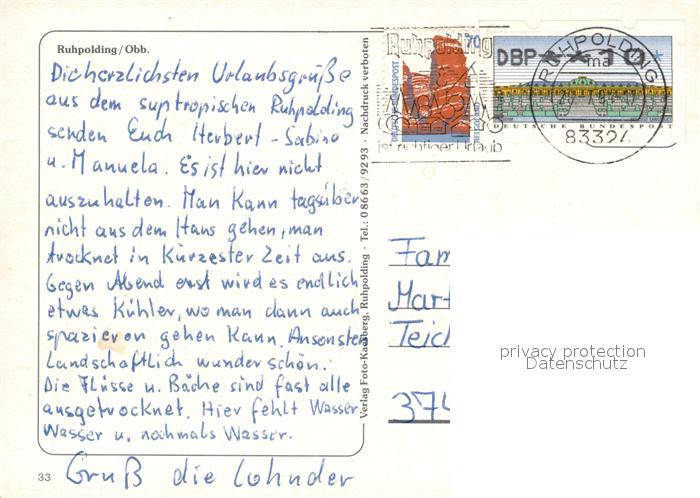 Ruhpolding/Obb.
Die herzlichsten Urlaubsgrüße
aus dem suptropischen Ruhpolding
senden Euch Herbert - Sabine
u. Manuela. Es ist hier nicht
auszuhalten. Man kann tagsüber
nicht aus dem Haus gehen, man
trocknet in kürzester Zeit aus.
Gegen Abend erst wird es endlich
etwas kühler, wo man dann auch
spazieren gehen kann. Ansonsten
Landschaftlich wunderschön.
Die Flüsse u. Bäche sind fast alle
ausgetrocknet. Hier fehlt Wasser,
Wasser u. nochmals Wasser.
33
Gruß die Lohnder
Verlag Foto-Kamberg, Ruhpolding · Tel.: 08663/9293 · Nachdruck verboten
Ruhpolding
ist richtiger Urlaub
70
DEUTSCHE BUNDESPOST
DBP
DEUTSCHE BUNDESPOST
RUHPOLDING
83324
Fam
Mart
Teich
374
privacy protection
Datenschutz